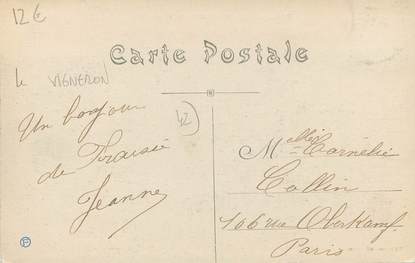 12€
Carte Postale
le VIGNERON
Un bonjour
de Fraisie
Jeanne
42
Melle Cornélie
Collin
166 rue Oberkampf
Paris
P